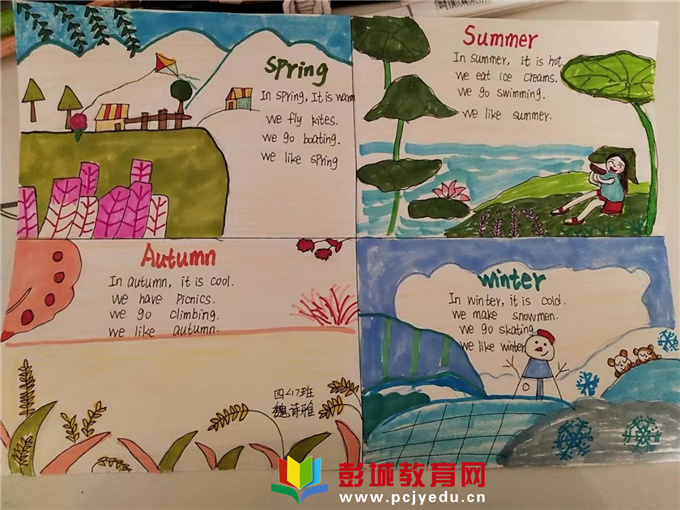 Spring
In spring, It is warm
We fly kites.
We go boating.
We like spring
Summer
In Summer, it is hot
We eat ice creams.
We go swimming.
We like summer.
Autumn
In autumn, it is cool.
We have Picnics.
We go climbing.
We like autumn.
四(17)班
魏诗雅
winter
In winter, it is cold.
We make snowmen.
We go skating
We like winter
彭城教育网
www.pcjyedu.cn